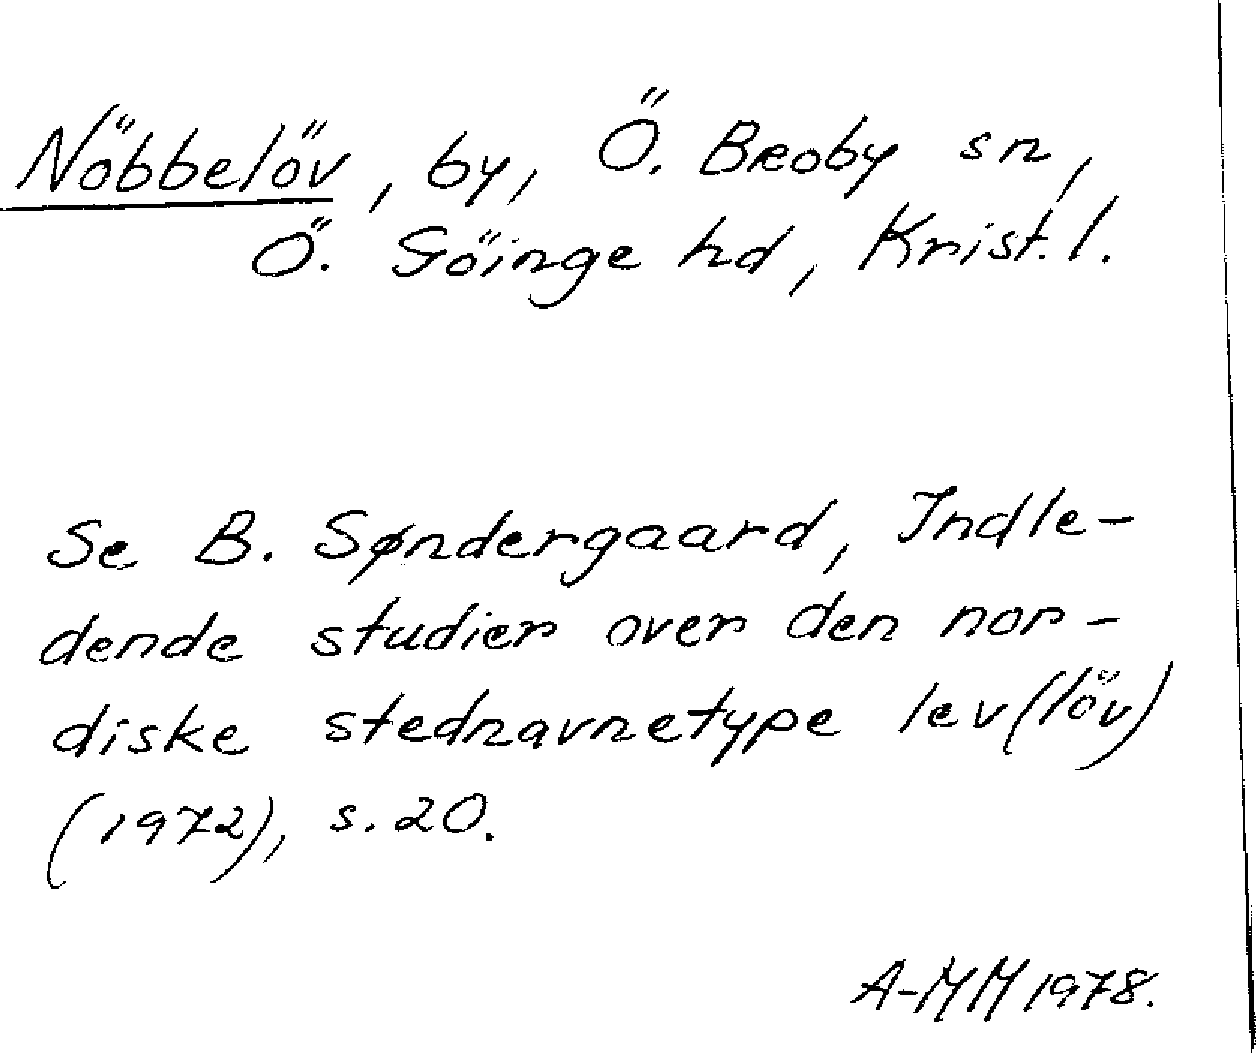 Nöbbelöv, by, Ö. Broby sn,
Ö. Göinge hd, Krist. l.
Se B. Søndergaard, Indle-
dende studier over den nor-
diske stednavnetype lev(löv)
(1972), s. 20.
A-MM 1978.